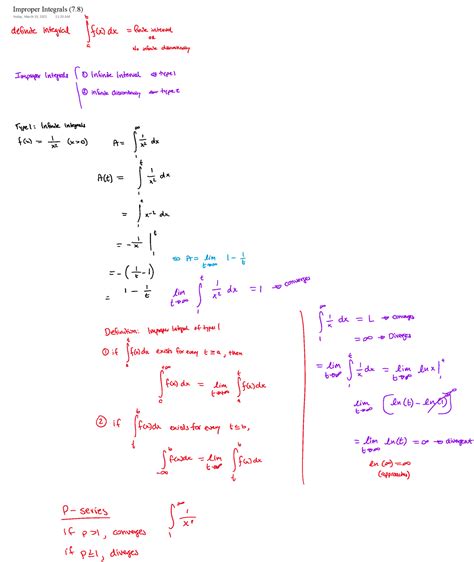 Improper Integrals (7.8)
Friday, March 10, 2023 11:30 AM
definite integral ∫_a^b f(x) dx = finite interval
or
no infinite discontinuity
Improper Integrals { ① Infinite Interval ⇒ type 1
② infinite discontinuity ⇒ type 2
Type 1: Infinite integrals
f(x) = 1/x² (x>0) A = ∫_1^∞ 1/x² dx
A(t) = ∫_1^t 1/x² dx
= ∫_1^t x^-2 dx
= -1/x |_1^t
⇒ A = lim_{t→∞} 1 - 1/t
= -(1/t - 1)
= 1 - 1/t
lim_{t→∞} ∫_1^t 1/x² dx = 1 → converges
Definition: Improper Integral of type 1
① if ∫_a^t f(x) dx exist for every t ≥ a, then
∫_a^{+∞} f(x) dx = lim_{t→∞} ∫_a^t f(x) dx
② if ∫_t^b f(x) dx exists for every t ≤ b,
∫_{-∞}^b f(x) dx = lim_{t→∞} ∫_t^b f(x) dx
∫_1^∞ 1/x dx = L → converges
= ∞ → Diverges
= lim_{t→∞} ∫_1^t 1/x dx = lim_{t→∞} ln x |_1^t
lim_{t→∞} [ln(t) - ln(1)]
= lim_{t→∞} ln(t) = ∞ → divergent
ln(∞) = ∞
(approaches)
P-series
∫_1^∞ 1/x^p
if p>1, converges
if p≤1, diverges